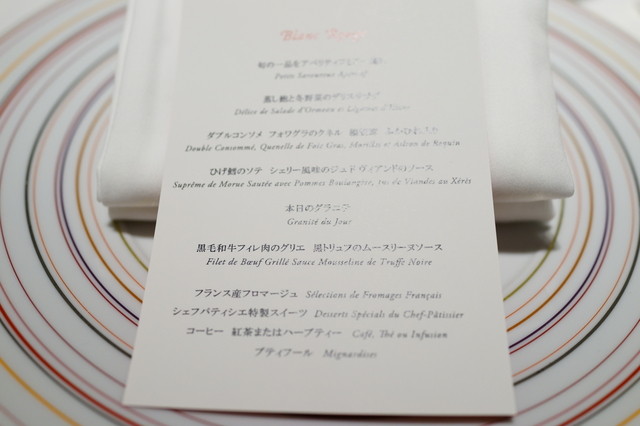 Blanc Rouge
旬の一品をアペリティフと
Petit Savoureux Apéritif
蒸し鮑と冬野菜のデリスサラダ
Délice de Salade d'Ormeau et Légumes d'Hiver
ダブルコンソメ フォワグラのクネル
Double Consommé, Quenelle de Foie Gras, Morilles et Aileron de Requin
ひげ鱈のソテ シェリー風味のジュ ド ヴィアンドのソース
Suprême de Morue Sautée avec Pommes Boulangère, Jus de Viandes au Xérès
本日のグラニテ
Granité du Jour
黒毛和牛フィレ肉のグリエ 黒トリュフのムースリーヌソース
Filet de Bœuf Grillé Sauce Mousseline de Truffe Noire
フランス産フロマージュ Sélections de Fromages Français
シェフパティシエ特製スイーツ Desserts Spécials du Chef-Pâtissier
コーヒー 紅茶またはハーブティー Café, Thé ou Infusion
プティフール Mignardises